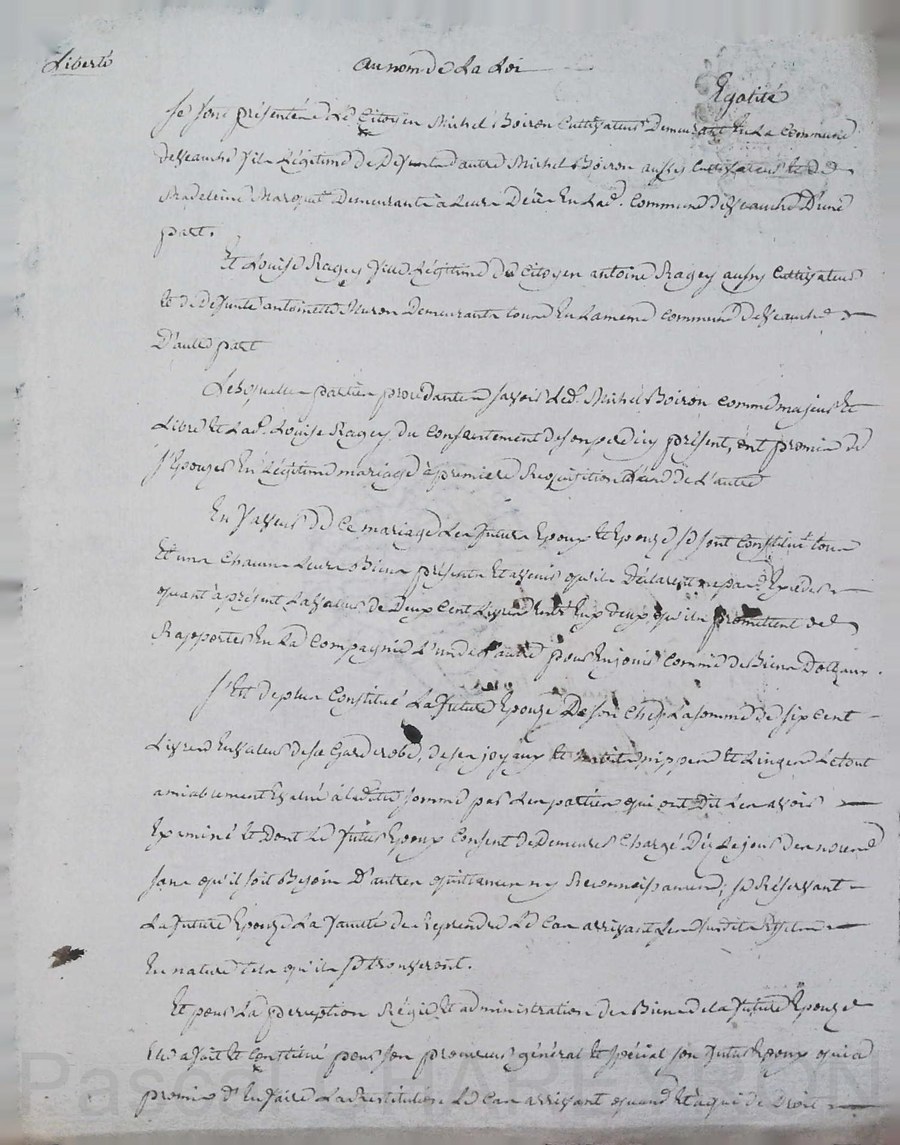 Liberté
au nom de La Loi
Egalité
Se sont présentés Le Citoyen Michel Boiron Cultivateur Demeurant En La Commune
de Veauche fils Légitime de Defunt autre Michel Boiron aussy Cultivateur Et de
Madeleine Marque Demeurante à Leurs Décès En Lad. Commune de Veauche D'une
part.
Et Louise Ragey fille Légitime du Citoyen antoine Ragey aussy Cultivateur
Et de Defunte antoinette Demeurants tous En La meme Commune de Veauche
D'autre part
Lesquelles parties procédantes savoir Led. Michel Boiron comme majeur Et
Libre Et Lad. Louise Ragey du Consentement de son pere icy présent, ont promis de
s'Epouzer En Légitime mariage à première Requisition L'un de L'autre
En faveur de Ce mariage Les futurs Epoux Et Epouze se sont Constitué tous
Et un Chacun Leurs Biens présents Et avenir qu'ils Déclarent ne pas Exceder
quant à présent La valeur de Deux Cent Livres Entr'Eux Deux qu'ils promettent de
Rapporter En La Compagnie L'un de L'autre pour En jouir Comme de Biens Dotaux.
S'Est de plus Constitué La future Epouze De son Chef La somme de six Cent
Livres En valeur de sa Garderobe, de ses joyaux Et habits nippes Et Linges Le tout
amiablement Evalué à ladite somme par Les parties qui ont Dit Les avoir
Examiné Et Dont Le futur Epoux Consent de Demeurer Chargé Dèz Le jour des noces
sans qu'il soit Bezoin D'autres quittances ny Reconnoissances; se Réservant
La future Epouze La faculté de Reprendre Le Cas arrivant Les susdits Effets
En nature tels qu'ils se trouveront.
Et pour La perception Régie Et administration des Biens de la future Epouze
Elle a fait Et Constitué pour son procureur général Et spécial son futur Epoux qui a
promis D'En faire La Restitution Le Cas arrivant quand Et à qui de Droit
Pascal CHAREYRON